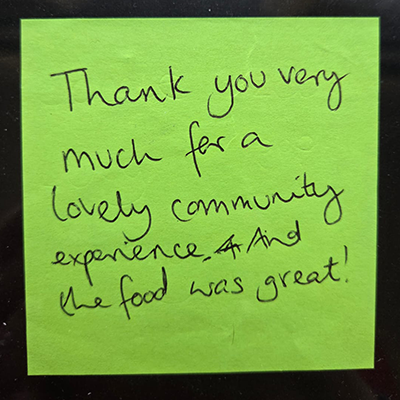 Thank you very
much for a
lovely community
experience. And
the food was great!